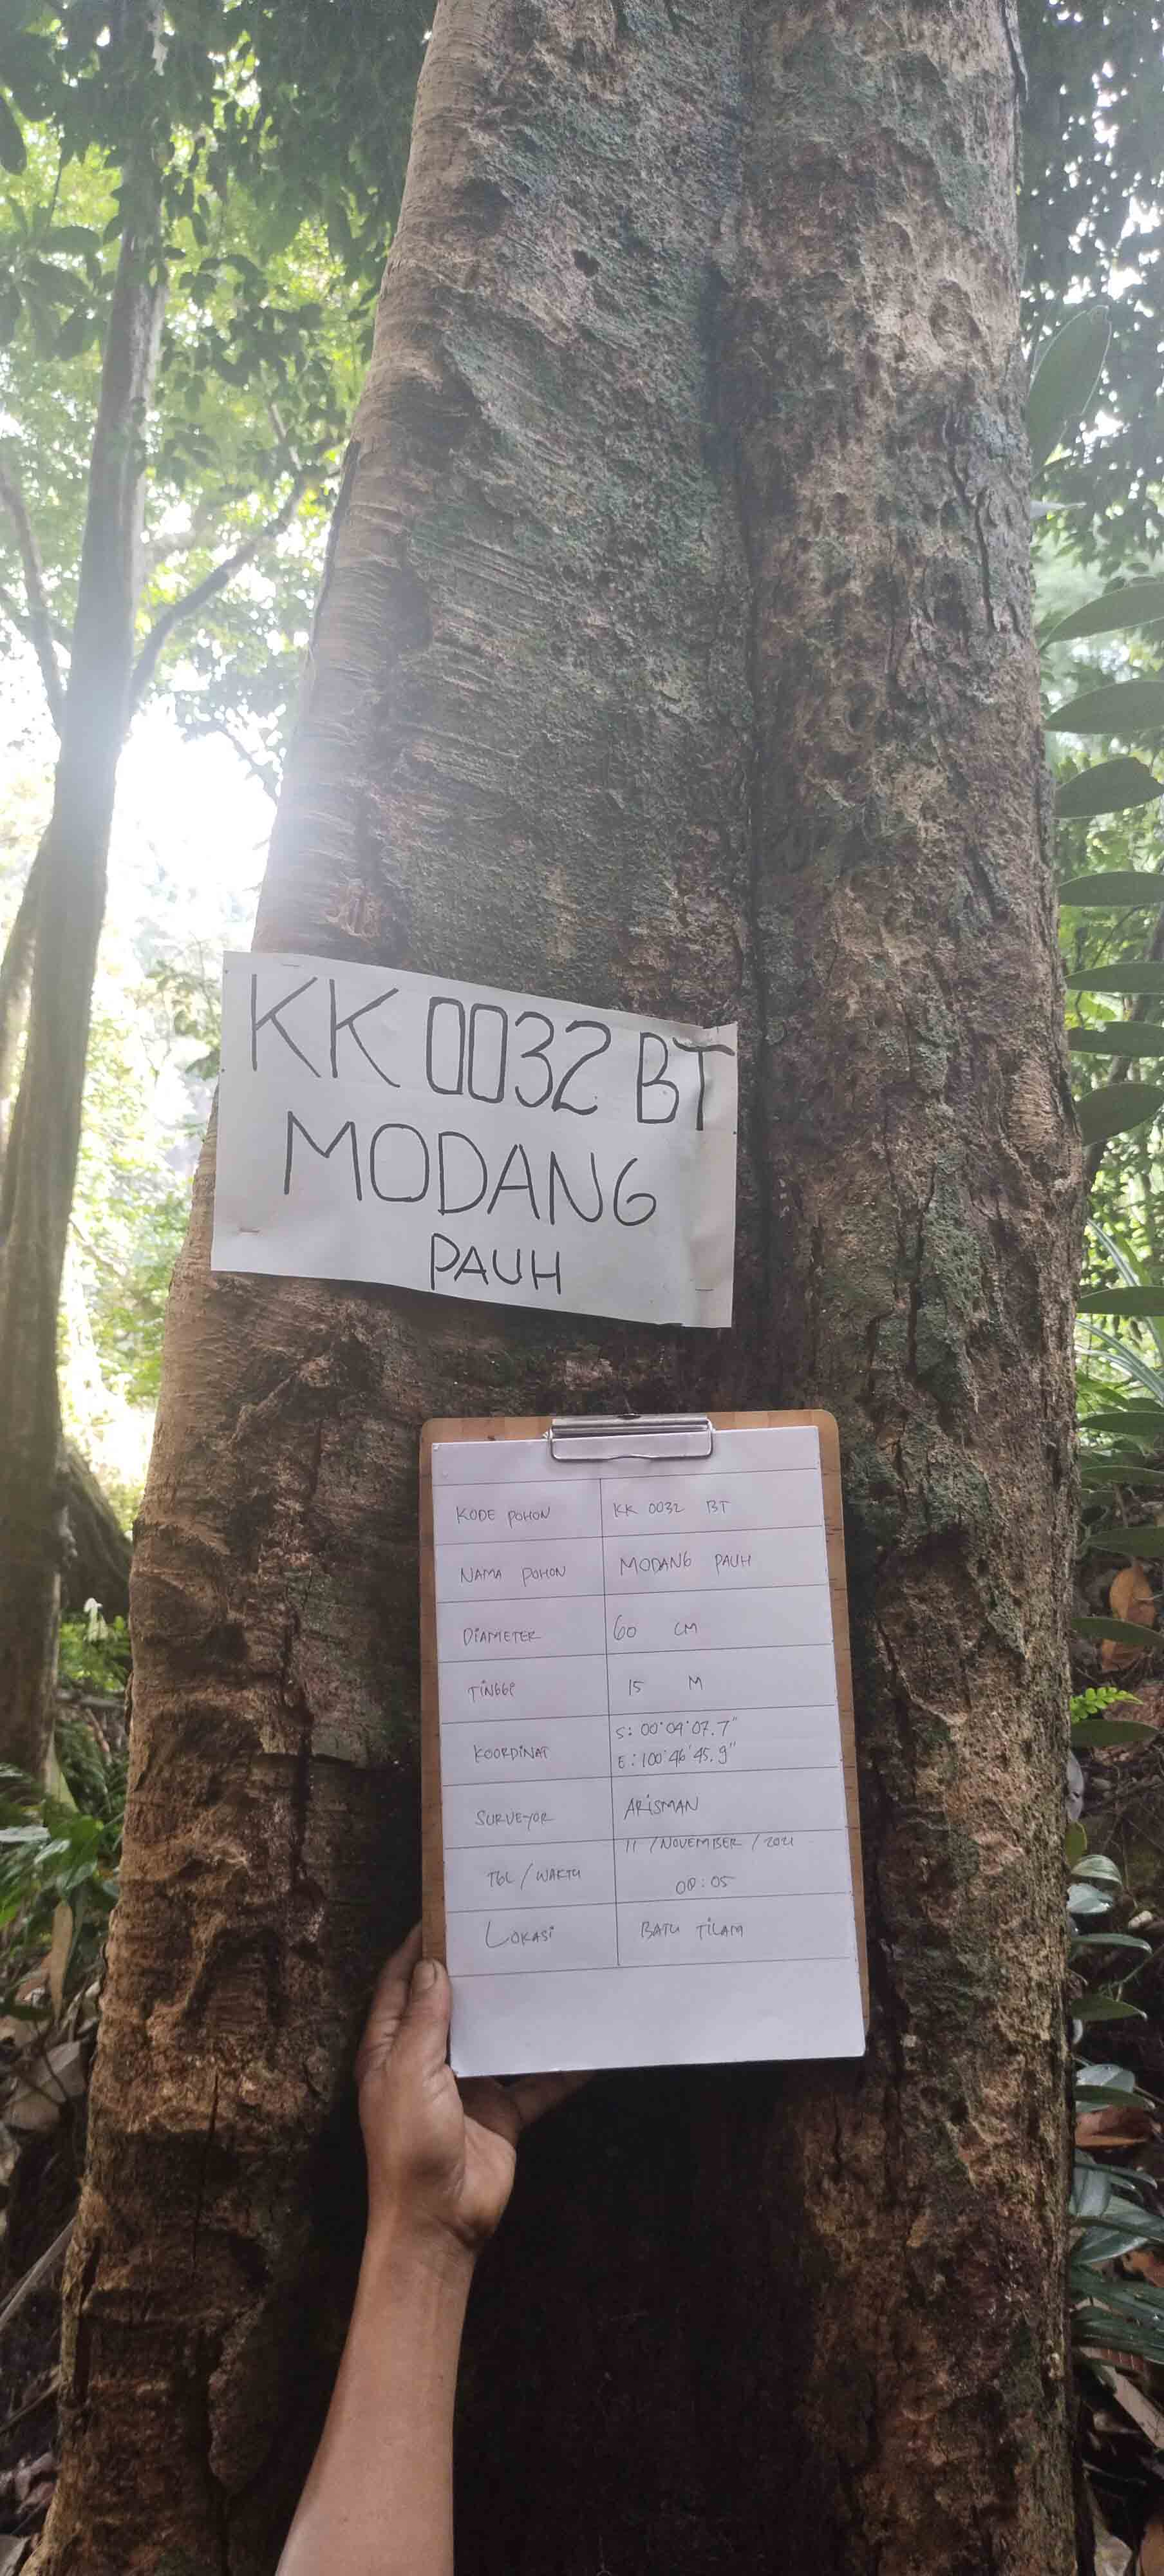 KK 0032 BT
MODANG
PAUH
KODE POHON KK 0032 BT
NAMA POHON MODANG PAUH
DIAMETER 60 CM
TINGGI 15 M
KOORDINAT S: 00°04'07.7"
E: 100°46'45.9"
SURVEYOR ARISMAN
11 / NOVEMBER / 2021
TGL / WAKTU
08:05
LOKASI BATU TILAM